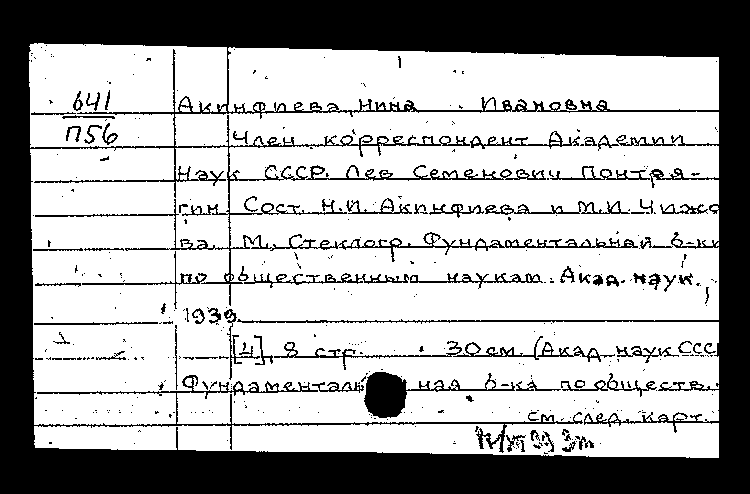 641
П56
Акинфиева, Нина Ивановна
Член корреспондент Академии
Наук СССР. Лев Семенович Понтря-
гин. Сост. Н.И. Акинфиева и М.И. Чижо
ва. М., Стеклогр. Фундаментальной б-ки
по общественным наукам. Акад. наук.,
1939.
[4], 8 стр. 30 см. (Акад. наук СССР
Фундаменталь ная б-ка по обществ.
см. след. карт.